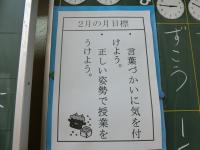 2月の月目標
・言葉づかいに気を付
けよう。
・正しい姿勢で授業を
うけよう。
ずこう